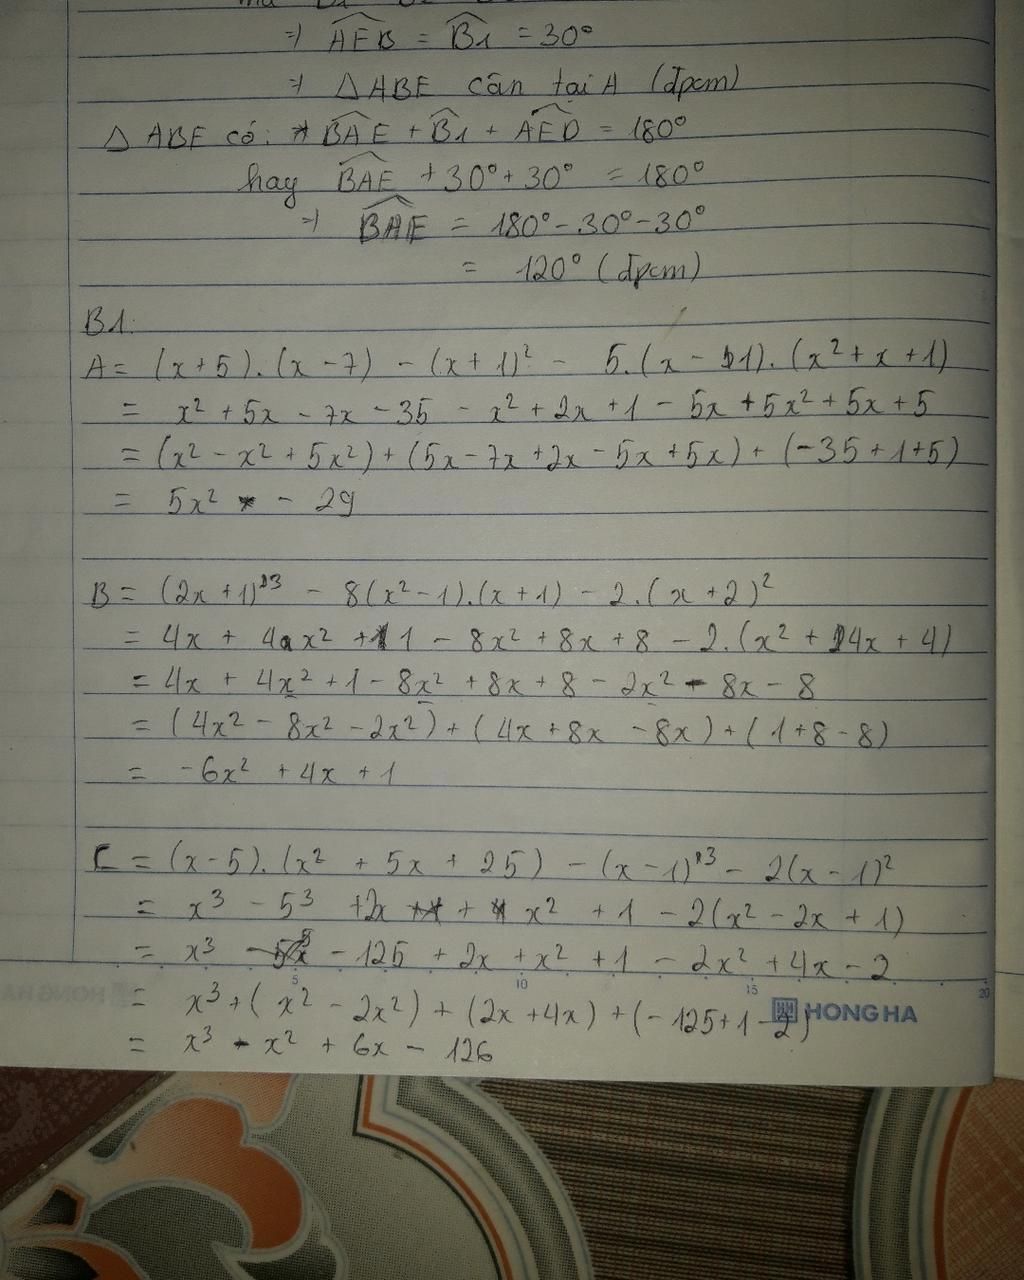 ⇒ AEB = B1 = 30°
⇒ △ABE cân tại A (đpcm)
△ABE có: BAE + B1 + AED = 180°
hay BAE + 30° + 30° = 180°
⇒ BAE = 180° - 30° - 30°
= 120° (đpcm)
B1:
A = (x+5).(x-7) - (x+1)² - 5.(x-1).(x²+x+1)
= x² + 5x - 7x - 35 - x² + 2x + 1 - 5x + 5x² + 5x + 5
= (x² - x² + 5x²) + (5x - 7x + 2x - 5x + 5x) + (-35+1+5)
= 5x² - 29
B = (2x+1)³ - 8(x²-1).(x+1) - 2.(x+2)²
= 4x + 4x² + 1 - 8x² + 8x + 8 - 2.(x² + 4x + 4)
= 4x + 4x² + 1 - 8x² + 8x + 8 - 2x² - 8x - 8
= (4x² - 8x² - 2x²) + (4x + 8x - 8x) + (1+8-8)
= -6x² + 4x + 1
C = (x-5).(x² + 5x + 25) - (x-1)³ - 2(x-1)²
= x³ - 5³ + 2x + x² + 1 - 2(x² - 2x + 1)
= x³ - 125 + 2x + x² + 1 - 2x² + 4x - 2
5 10 15 20
= x³ + (x² - 2x²) + (2x + 4x) + (-125+1-2)
HONG HA
= x³ - x² + 6x - 126